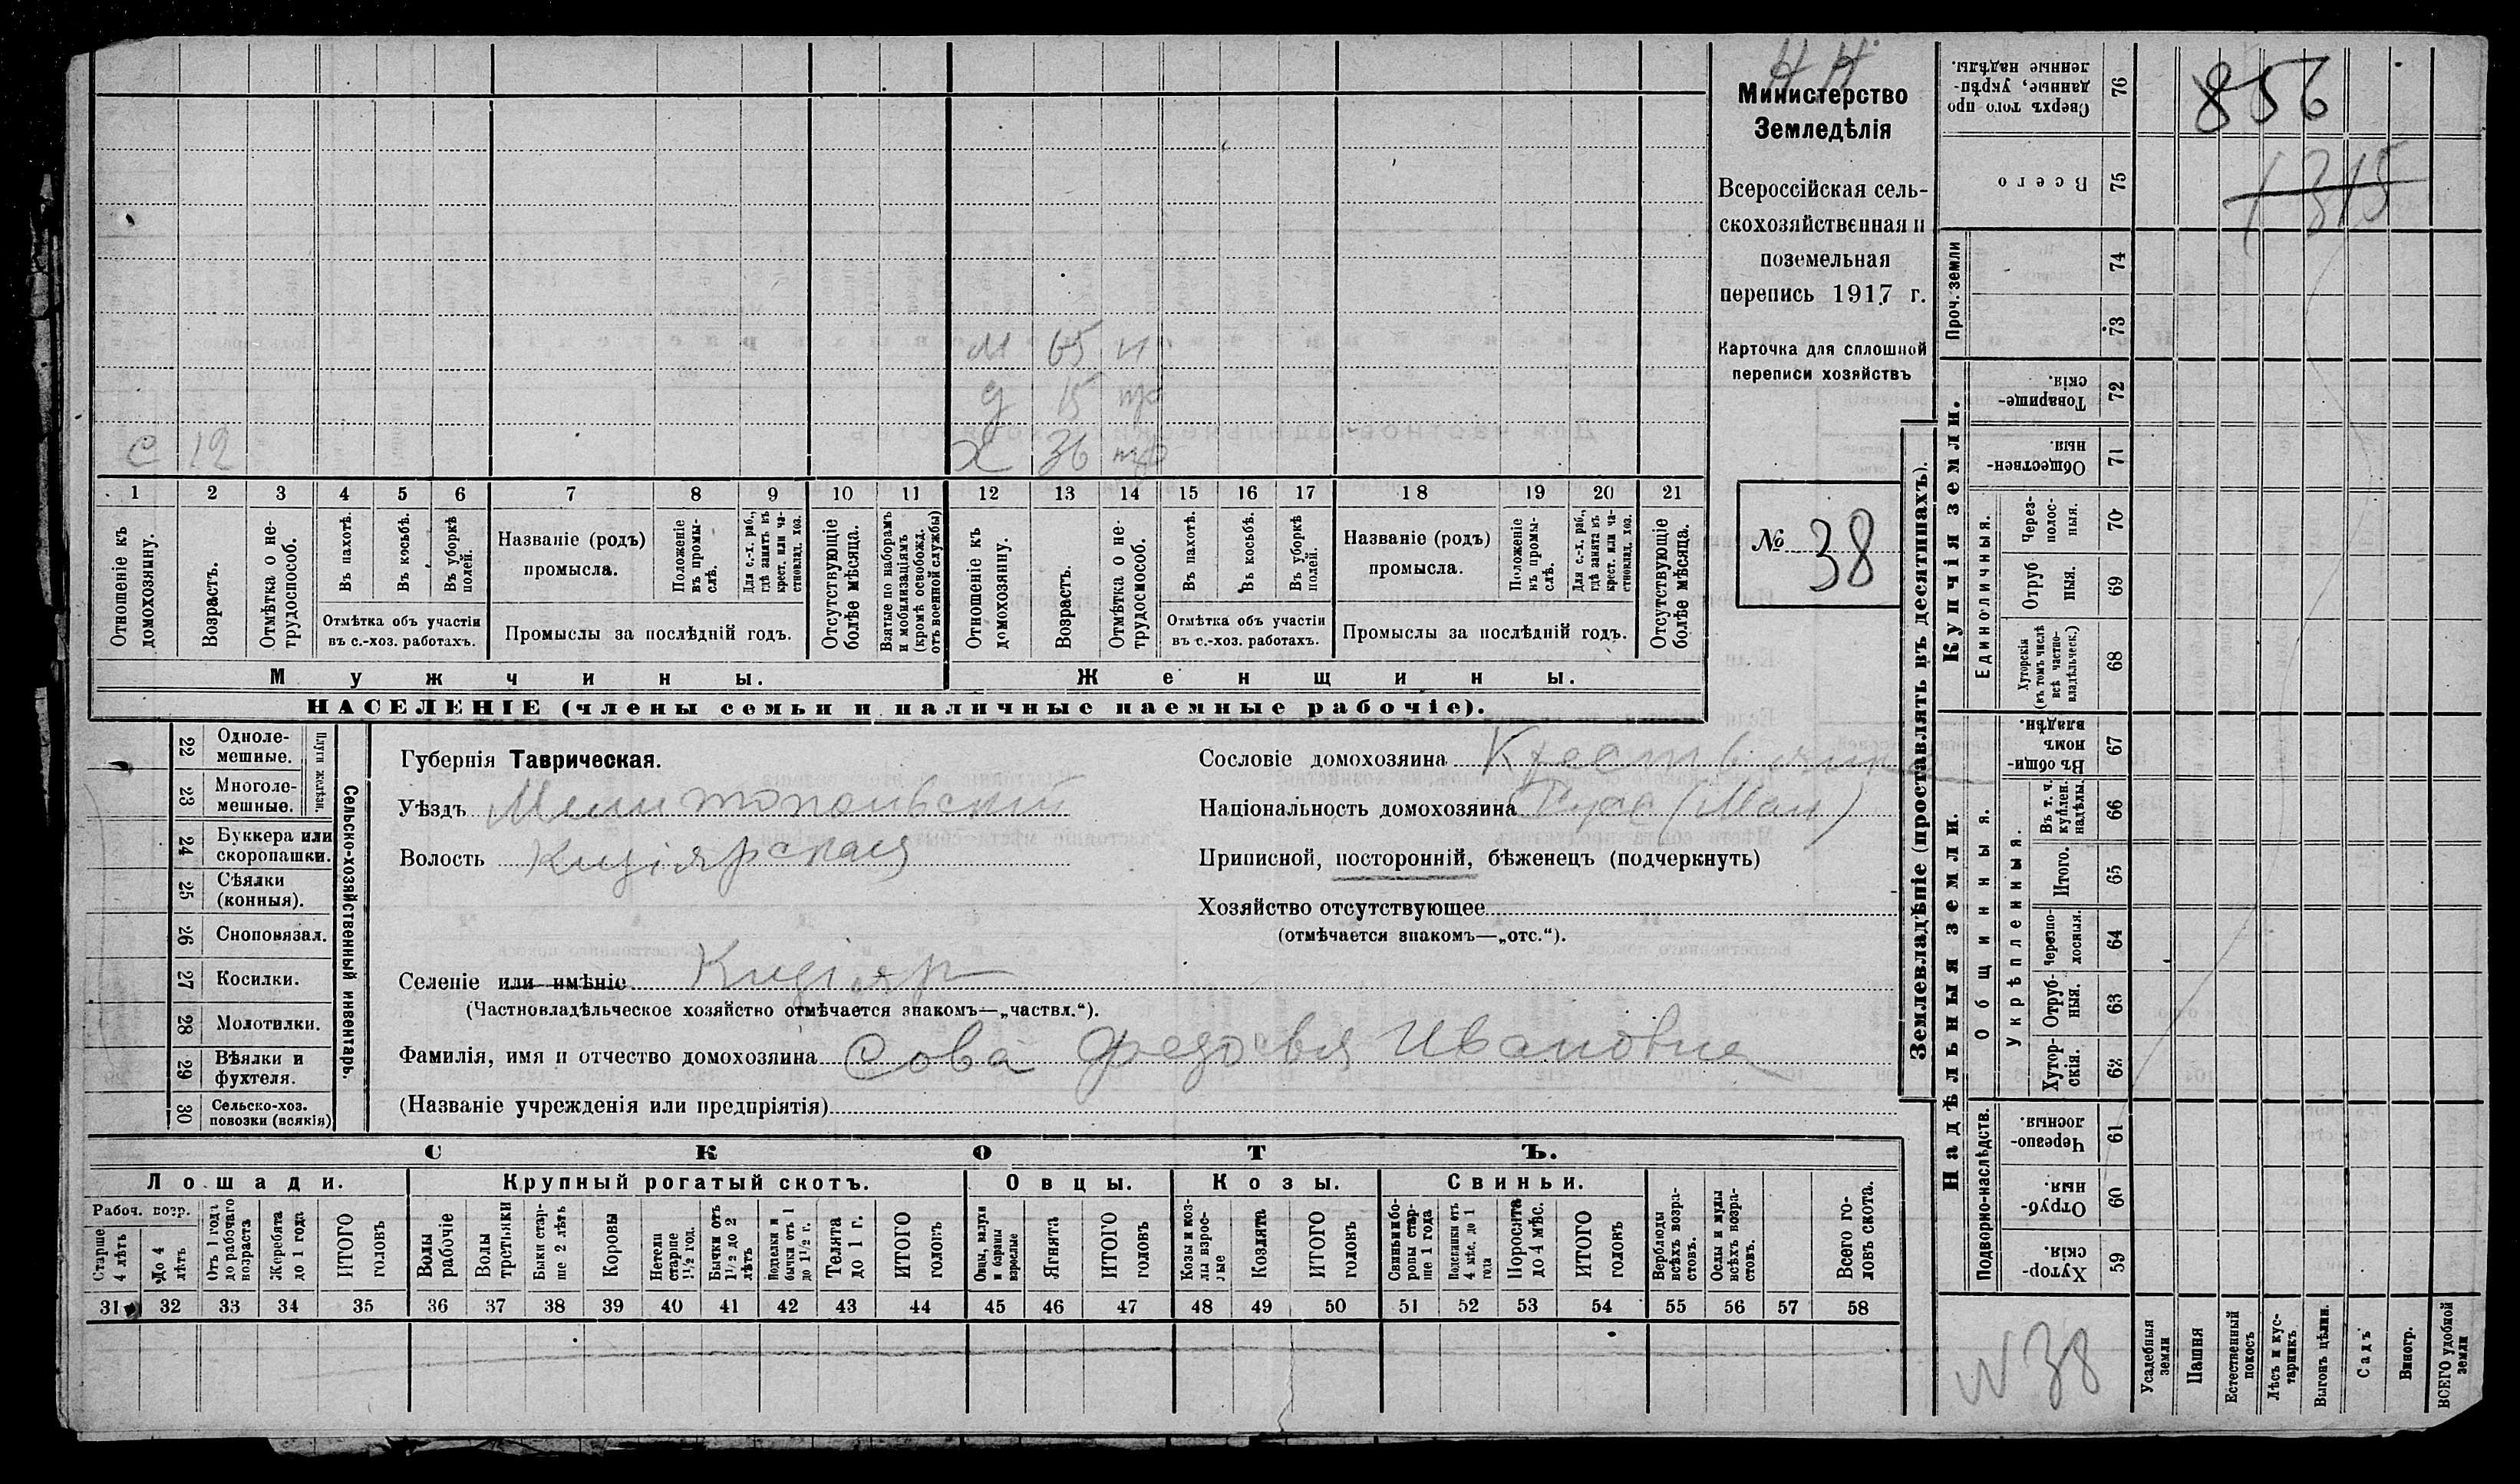 Н Н
Министерство
Земледѣлія
Всероссійская сель-
скохозяйственная и
поземельная
перепись 1917 г.
Карточка для сплошной
переписи хозяйствъ
№ 38
м 65 н
д 15
с 12
х 36
1 2 3 4 5 6 7 8 9 10 11 12 13 14 15 16 17 18 19 20 21
Отношеніе къ домохозяину.
Возрастъ.
Отмѣтка о не-трудоспособ.
Въ пахотѣ.
Въ косьбѣ.
Въ уборкѣ полей.
Отмѣтка объ участіи
въ с.-хоз. работахъ.
Названіе (родъ)
промысла.
Положеніе въ промы-слѣ.
Для с.-х. раб., гдѣ занятъ въ крест. или ча-стновлад. хоз.
Промыслы за послѣдній годъ.
Отсутствующіе болѣе мѣсяца.
Взятые по наборамъ и мобилизаціямъ (кромѣ освобожд. отъ военной службы)
Отношеніе къ домохозяину.
Возрастъ.
Отмѣтка о не-трудосмособ.
Въ пахотѣ.
Въ косьбѣ.
Въ уборкѣ полей.
Отмѣтка объ участіи
въ с.-хоз. работахъ.
Названіе (родъ)
промысла.
Положеніе въ промы-слѣ.
Для с.-х. раб., гдѣ занята въ крест. или ча-стновлад. хоз.
Промыслы за послѣдній годъ.
Отсутствующіе болѣе мѣсяца.
Мужчины.
Женщины.
НАСЕЛЕНІЕ (члены семьи и наличные наемные рабочіе).
22 Одноле-мешные.
23 Многоле-мешные.
Плуги желѣзн.
24 Буккера или скоропашки.
25 Сѣялки (конныя).
26 Сноповязал.
27 Косилки.
28 Молотилки.
29 Вѣялки и фухтеля.
30 Сельско-хоз. повозки (всякія)
Сельско-хозяйственный инвентарь.
Губернія Таврическая.
Уѣздъ Мелитопольскій
Волость Кизіярская
Селеніе или имѣніе Кизіяр
(Частновладѣльческое хозяйство отмѣчается знакомъ—„частвл.“).
Фамилія, имя и отчество домохозяина Сова Федосья Ивановна
(Названіе учрежденія или предпріятія)
Сословіе домохозяина
Національность домохозяина Русс (Мал)
Приписной, посторонній, бѣженецъ (подчеркнуть)
Хозяйство отсутствующее
(отмѣчается знакомъ—„отс.“).
СКОТЪ.
Лошади.
Рабоч. возр.
Старше 4 лѣтъ
До 4 лѣтъ
Отъ 1 года до рабочаго возраста
Жеребята до 1 года
ИТОГО головъ
Крупный рогатый скотъ.
Волы рабочіе
Волы третьяки
Быки стар-ше 2 лѣтъ
Коровы
Нетели старше 1½ год.
Бычки отъ 1½ до 2 лѣтъ
Подтелки и бычки отъ 1 до 1½ г.
Телята до 1 г.
ИТОГО головъ
Овцы.
Овцы, валухи и бараны взрослые
Ягнята
ИТОГО головъ
Козы.
Козы и коз-лы взрос-лые
Козлята
ИТОГО головъ
Свиньи.
Свиньи и бо-ровы стар-ше 1 года
Подсвинки отъ 4 мѣс. до 1 года
Поросята до 4 мѣс.
ИТОГО головъ
Верблюды всѣхъ возра-стовъ.
Ослы и мулы всѣхъ возра-стовъ.
Всего го-ловъ скота.
31 32 33 34 35 36 37 38 39 40 41 42 43 44 45 46 47 48 49 50 51 52 53 54 55 56 57 58
Землевладѣніе (проставлять въ десятинахъ).
Купчія земли.
Надѣльныя земли.
76 Сверхъ того про данные, укрѣп-ленные надѣлы.
75 Всего
Проч. земли
74
73
72 Товарище-скія.
71 Обществен-ныя.
Единоличныя.
70 Через-полос-ныя.
69 Отруб ныя.
68 Хуторскія (въ томъ числѣ всѣ частно-владѣльческ.)
67 Въ общи-номъ владѣн.
Общинныя.
Укрѣпленныя.
66 Въ т. ч. куплен. надѣлы.
65 Итого.
64 Черезпо-лосныя.
63 Отруб-ныя.
62 Хутор-скія.
Подворно-наслѣдств.
61 Черезпо-лосныя.
60 Отруб-ныя.
59 Хутор-скія.
Усадебныя земли
Пашня
Естественный покосъ
Лѣсъ и кус-тарникъ
Выгонъ цѣлин.
Садъ
Виногр.
ВСЕГО удобной земли
856
1315
N 38